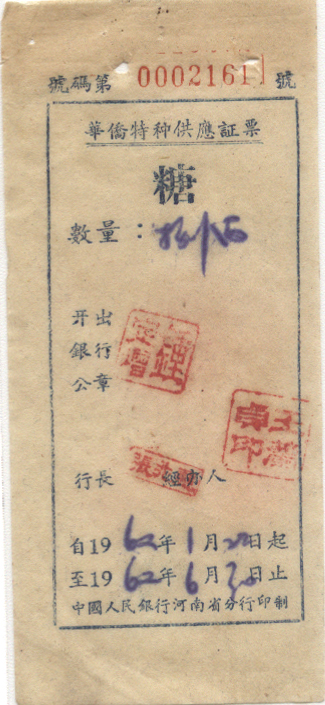 號碼第 0002161 號
華僑特种供應証票
糖
数量：
开出
銀行
公章
行長 經办人
自1962年1月22日起
至1962年6月30日止
中國人民銀行河南省分行印制